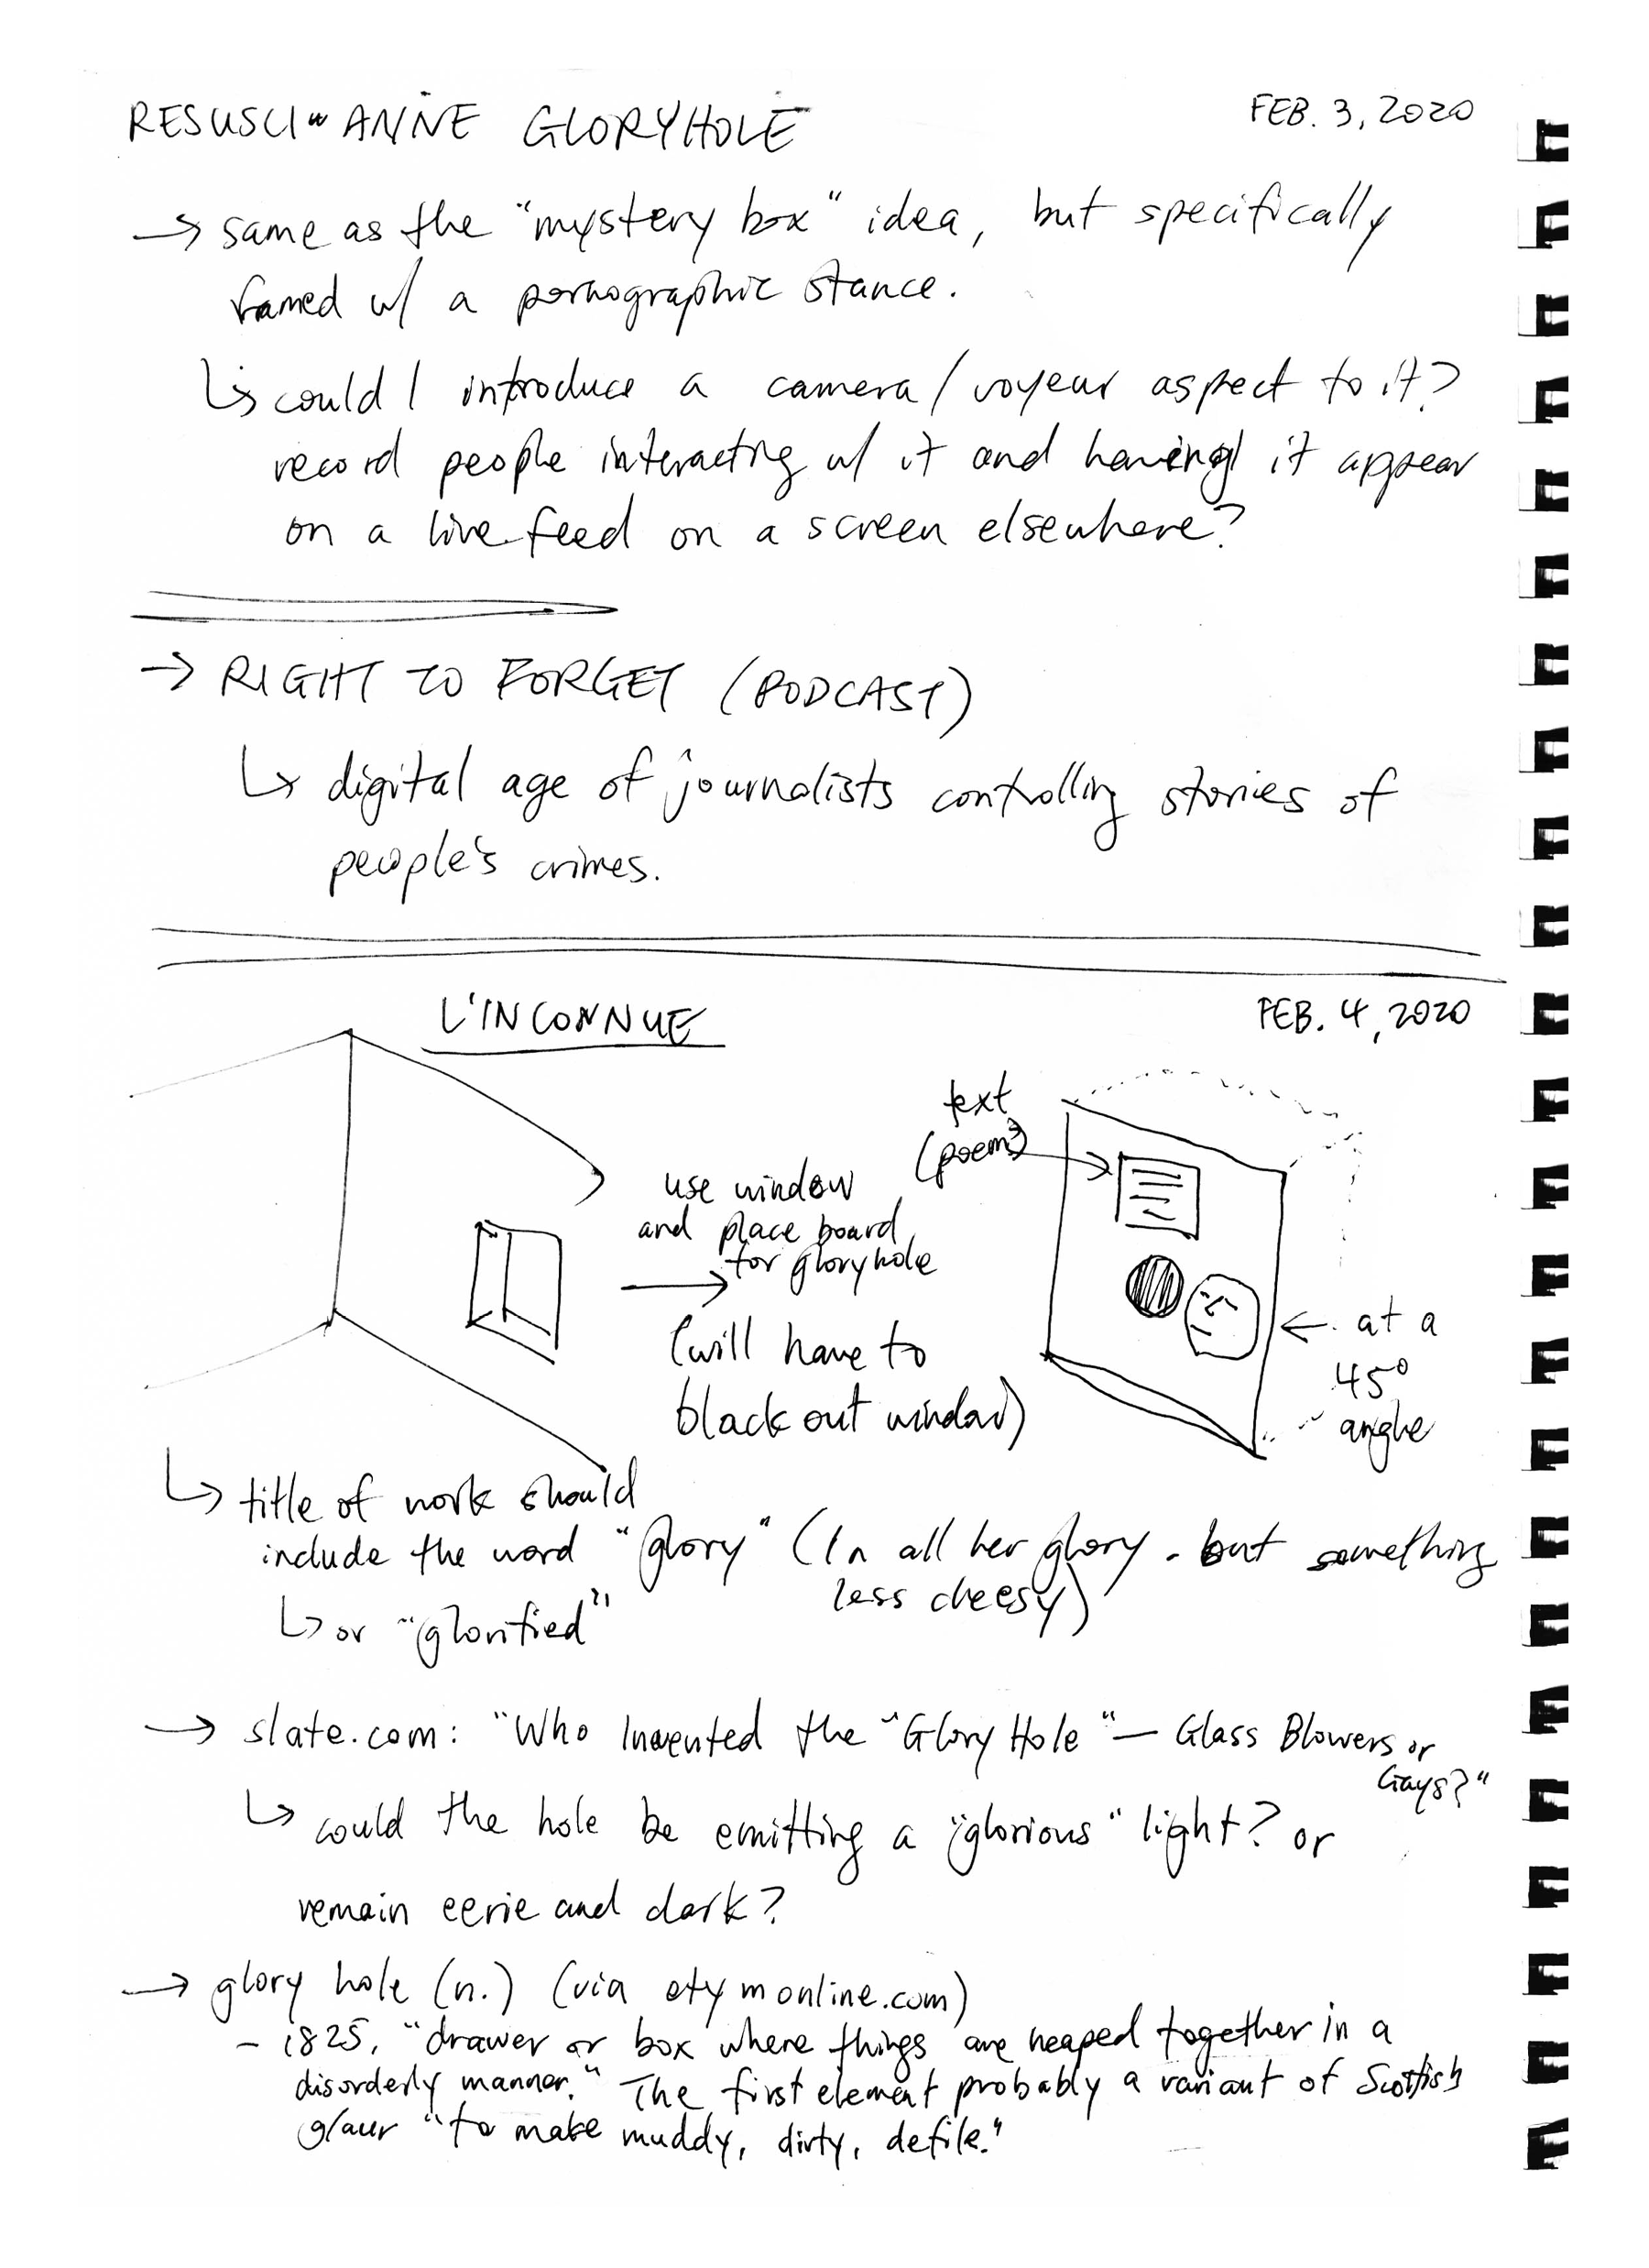 RESUSCI-ANNE GLORYHOLE
FEB. 3, 2020
→ same as the "mystery box" idea, but specifically
framed w/ a pornographic stance.
↳ could I introduce a camera/voyeur aspect to it?
record people interacting w/ it and having it appear
on a live feed on a screen elsewhere?
→ RIGHT TO FORGET (PODCAST)
↳ digital age of journalists controlling stories of
people's crimes.
L'INCONNUE
FEB. 4, 2020
use window
and place board
for gloryhole
(will have to
black out window)
text
(poem?)
← at a
45°
angle
↳ title of work should
include the word "glory" (In all her glory - but something
less cheesy)
↳ or "glorified"
→ slate.com: "Who Invented the "Glory Hole" — Glass Blowers or
Gays?"
↳ could the hole be emitting a "glorious" light? or
remain eerie and dark?
→ glory hole (n.) (via etymonline.com)
- 1825, "drawer or box where things are heaped together in a
disorderly manner." The first element probably a variant of Scottish
glaur "to make muddy, dirty, defile."